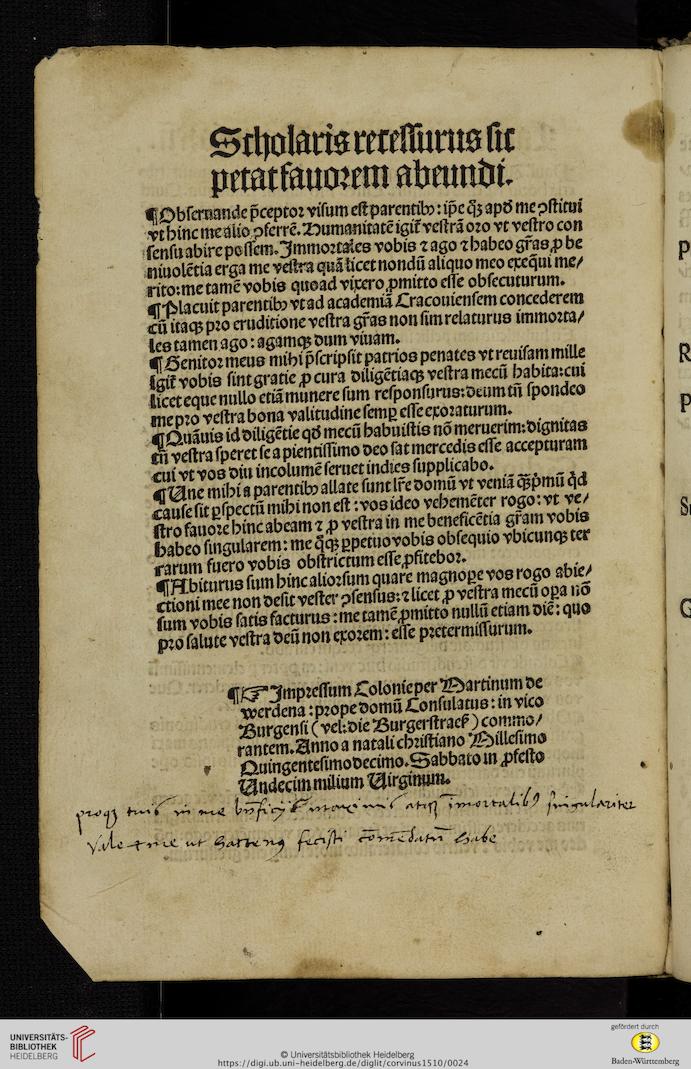 Scholaris recessurus sic
petat fauorem abeundi.
¶Obseruande p̄ceptor visum est parentibꝰ: ip̄e qȝ apd me ꝯstitui
vt hinc me alio ꝯferrē. Humanitatē igit᷑ vestrā oro vt vestro con
sensu abire possem. Immortales vobis ⁊ ago ⁊ habeo gr̄as ꝓ be
niuolētia erga me vestra quā licet nondū aliquo meo exequi me/
rito: me tamē vobis quoad vixero ꝓmitto esse obsecuturum.
¶Placuit parentibꝰ vt ad academiā Cracouiensem concederem
cū itaqȝ pro eruditione vestra gr̄as non sim relaturus immorta/
les tamen ago: agamqȝ dum viuam.
¶Genitor meus mihi p̄scripsit patrios penates vt reuisam mille
igit᷑ vobis sint gratie ꝓ cura diligētiaqȝ vestra mecū habita: cui
licet eque nullo etiā munere sum responsurus: deum tn̄ spondeo
me pro vestra bona valitudine semꝑ esse exoraturum.
¶Quāuis id diligētie qd̄ mecū habuistis nō meruerim: dignitas
tn̄ vestra speret se a pientissimo deo sat mercedis esse accepturam
cui vt vos diu incolumē seruet indies supplicabo.
¶Une mihi a parentibꝰ allate sunt lr̄e domū vt veniā qȝp̄mū qd
cause sit ꝑspectū mihi non est: vos ideo vehemēter rogo: vt ve/
stro fauore hinc abeam ⁊ ꝓ vestra in me beneficētia gr̄am vobis
habeo singularem: me qȝ ꝑpetuo vobis obsequio vbicunqȝ ter
rarum fuero vobis obstrictum esse ꝓfitebor.
¶Abiturus sum hinc aliorsum quare magnoꝑe vos rogo abie/
ctioni mee non desit vester ꝯsensus: ⁊ licet ꝓ vestra mecū oꝑa nō
sum vobis satis facturus: me tamē ꝓmitto nullū etiam diē: quo
pro salute vestra deū non exorem: esse pretermissurum.
¶☞ Impressum Colonie per Martinum de
werdena: prope domū Consulatus: in vico
Burgensi (vel: die Burgerstraeß) commo/
rantem. Anno a natali christiano Millesimo
Quingentesimo decimo. Sabbato in ꝓfesto
Undecim milium Uirginum.
proqȝ tuis in me bn̄ficijs maximis atqȝ īmortalibꝰ singulariter
Vale & me ut hactenꝰ fecisti cōmēdatū habe
P
R
P
S
G
UNIVERSITÄTS-
BIBLIOTHEK
HEIDELBERG
© Universitätsbibliothek Heidelberg
https://digi.ub.uni-heidelberg.de/diglit/corvinus1510/0024
gefördert durch
Baden-Württemberg